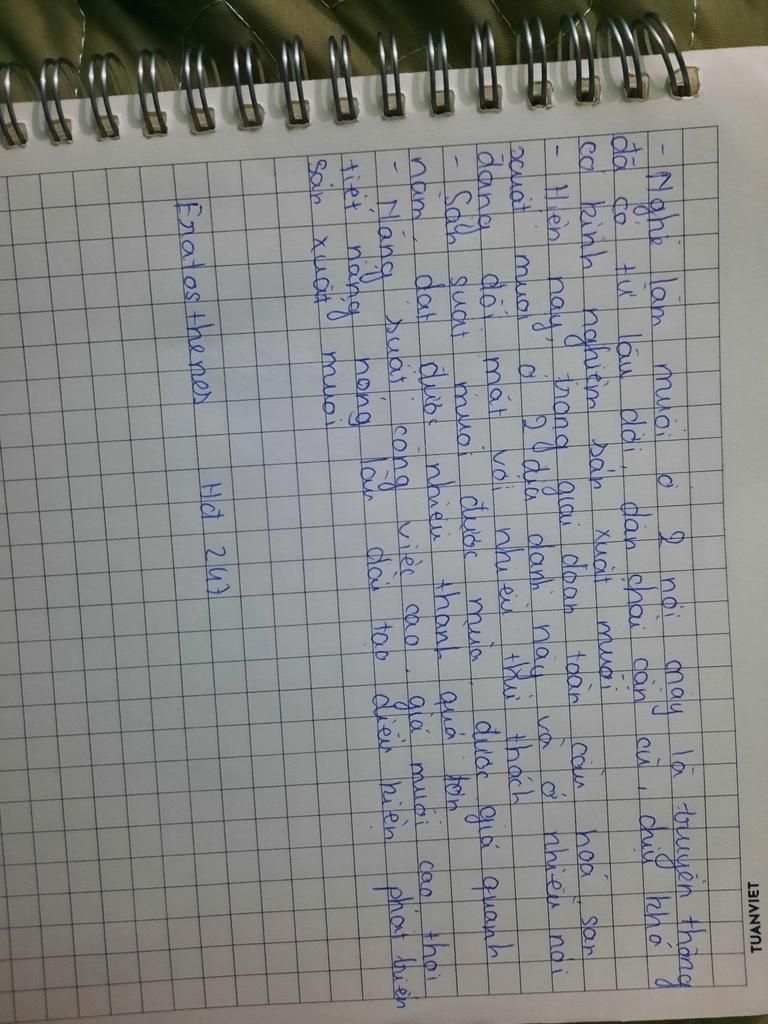 TUANVIET
- Nghề làm muối ở 2 nơi này là truyền thống
đã có từ lâu đời, dân chài cần cù, chịu khó
có kinh nghiệm sản xuất muối
- Hiện nay, trong giai đoạn toàn cầu hoá sản
xuất muối ở 2 địa danh này và ở nhiều nơi
đang đối mặt với nhiều thử thách
- Sản suất muối được mùa, được giá quanh
năm, đạt được nhiều thành quả lớn
- Năng suất công việc cao, giá muối cao thời
tiết nắng nóng lâu dài tạo điều kiện phát triển
sản xuất muối
Eratosthenes Hđ 247